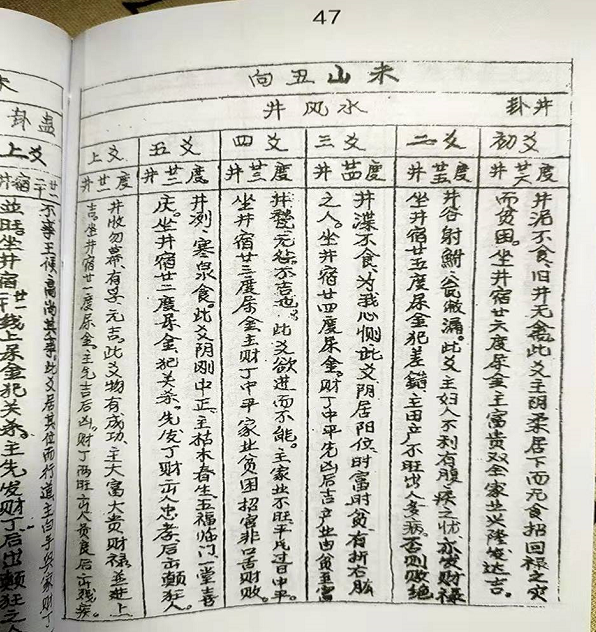 47
未山丑向
井卦
水风井
初爻
井廿六度
井泥不食,旧井无禽,此爻主阴柔居下而无食招回禄之灾
而贫困。坐井宿廿六度尿金主富贵双全家业兴隆发达吉。
二爻
井廿五度
井谷射鲋,瓮敝漏。此爻主妇人不利有腹疾之忧亦发财禄
坐井宿廿五度尿金犯差错,主田产不旺出人多病。否则败绝
三爻
井廿四度
井渫不食,为我心恻此爻阴居阳位,时富时贫,有折右肱
之人。坐井宿廿四度尿金。财丁中平先凶后吉产业由贫至富
四爻
井廿三度
井甃无咎不吉也。此爻欲进而不能。主家业不旺平凡过日中平。
坐井宿廿三度尿金主财丁中平家业贫困招官非口舌财败。
五爻
井廿二度
井冽,寒泉食。此爻阴刚中正主枯木春生五福临门一堂喜
庆。坐井宿廿二度尿金犯关杀。先发丁财出人忠孝后出颠狂人
上爻
井廿一度
井收勿幕有孚元吉。此爻物有成功,主大富大贵财禄并进上
吉坐井宿廿一度尿金主先吉后凶。财丁两旺出人贫良后出残疾。
蛊卦
上爻
不事王侯,高尚其事此爻居其位而行道主白手兴家财丁
坐井宿廿一线上尿金犯关杀。主先发财丁后出颠狂之人